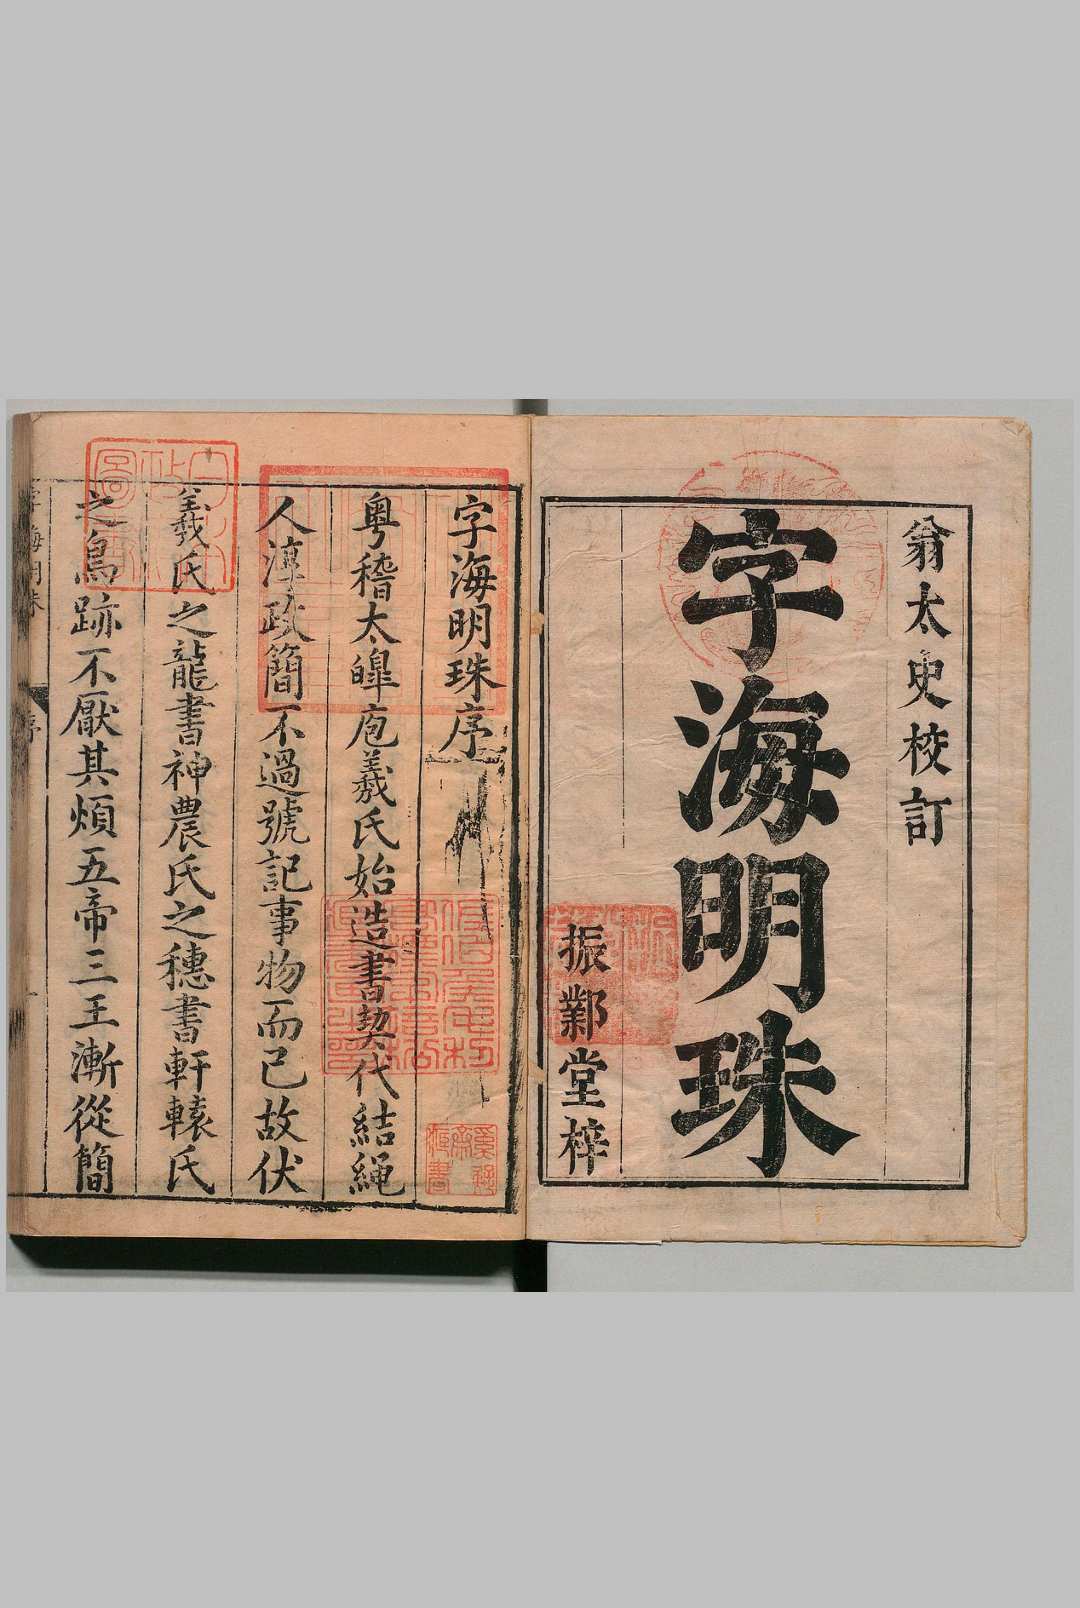 翁太史校訂
字海明珠
振鄴堂梓
字海明珠序
粵稽太皥庖羲氏始造書契代結繩
人淳政簡不過號記事物而已故伏
羲氏之龍書神農氏之穗書軒轅氏
之鳥跡不厭其煩五帝三王漸從簡